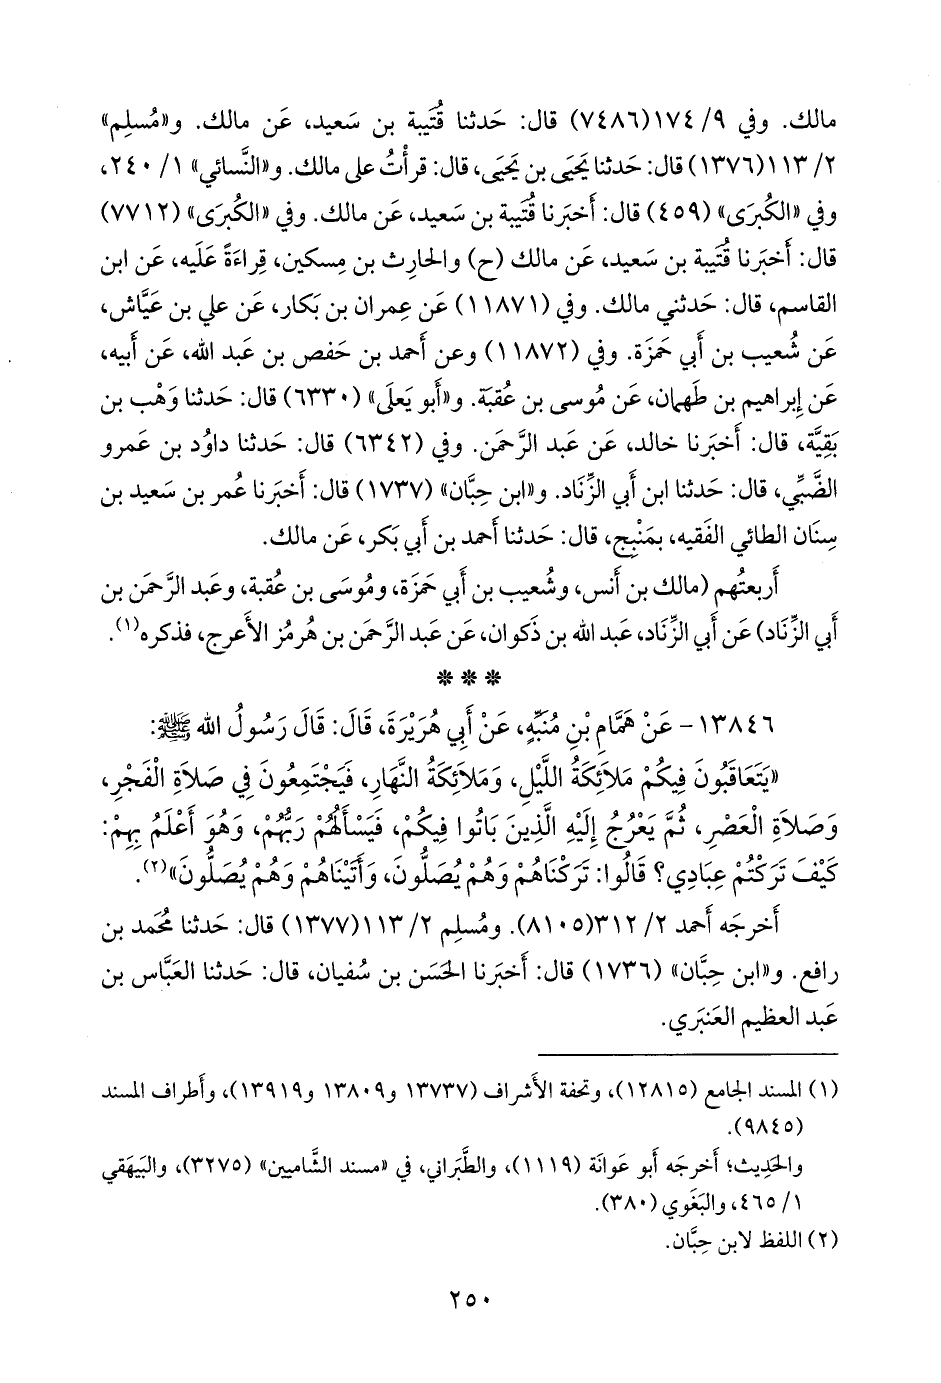 مالك. وفي ٩/ ١٧٤ (٧٤٨٦) قال: حَدثنا قُتَيبة بن سَعيد، عَن مالك. و«مُسلِم»
٢/ ١١٣ (١٣٧٦) قال: حَدثنا يَحيَى بن يَحيَى، قال: قرأْتُ على مالك. و«النَّسائي» ١/ ٢٤٠،
وفي «الكُبرَى» (٤٥٩) قال: أَخبَرنا قُتَيبة بن سَعيد، عَن مالك. وفي «الكُبرَى» (٧٧١٢)
قال: أَخبَرنا قُتَيبة بن سَعيد، عَن مالك (ح) والحارِث بن مِسكين، قِراءَةً عَلَيه، عَن ابن
القاسم، قال: حَدثني مالك. وفي (١١٨٧١) عَن عِمران بن بَكار، عَن علي بن عَيَّاش،
عَن شُعيب بن أَبي حَمزَة. وفي (١١٨٧٢) وعن أَحمد بن حَفص بن عَبد الله، عَن أَبيه،
عَن إِبراهيم بن طَهمان، عَن مُوسى بن عُقبَة. و«أَبو يَعلَى» (٦٣٣٠) قال: حَدثنا وَهْب بن
بَقِيَّة، قال: أَخبَرنا خالد، عَن عَبد الرَّحمَن. وفي (٦٣٤٢) قال: حَدثنا داوُد بن عَمرو
الضَّبِّي، قال: حَدثنا ابن أَبي الزِّنَاد. و«ابن حِبَّان» (١٧٣٧) قال: أَخبَرنا عُمر بن سَعيد بن
سِنَان الطائي الفَقيه، بمَنْبِج، قال: حَدثنا أَحمد بن أَبي بَكر، عَن مالك.
أَربعتُهم (مالك بن أَنس، وشُعيب بن أَبي حَمزَة، ومُوسَى بن عُقبة، وعَبد الرَّحمَن بن
أَبي الزِّنَاد) عَن أَبي الزِّنَاد، عَبد الله بن ذَكوان، عَن عَبد الرَّحمَن بن هُرمُز الأَعرج، فذكره(١).
* * *
١٣٨٤٦ - عَنْ هَمَّامِ بْنِ مُنَبِّهٍ، عَنْ أَبِي هُرَيْرَةَ، قَالَ: قَالَ رَسُولُ الله ﷺ:
«يَتَعَاقَبُونَ فِيكُمْ مَلاَئِكَةُ اللَّيْلِ، وَمَلاَئِكَةُ النَّهَارِ، فَيَجْتَمِعُونَ فِي صَلاَةِ الْفَجْرِ،
وَصَلاَةِ الْعَصْرِ، ثُمَّ يَعْرُجُ إِلَيْهِ الَّذِينَ بَاتُوا فِيكُمْ، فَيَسْأَلُهُمْ رَبُّهُمْ، وَهُوَ أَعْلَمُ بِهِمْ:
كَيْفَ تَرَكْتُمْ عِبَادِي؟ قَالُوا: تَرَكْنَاهُمْ وَهُمْ يُصَلُّونَ، وَأَتَيْنَاهُمْ وَهُمْ يُصَلُّونَ»(٢).
أَخرجَه أَحمد ٢/ ٣١٢ (٨١٠٥). ومُسلِم ٢/ ١١٣ (١٣٧٧) قال: حَدثنا مُحَمد بن
رافع. و«ابن حِبَّان» (١٧٣٦) قال: أَخبَرنا الحَسَن بن سُفيان، قال: حَدثنا العَبَّاس بن
عَبد العظيم العَنبَري.
(١) المسند الجامع (١٢٨١٥)، وتحفة الأَشراف (١٣٧٣٧ و١٣٨٠٩ و١٣٩١٩)، وأَطراف المسند
(٩٨٤٥).
والحَدِيث؛ أَخرجَه أَبو عَوانَة (١١١٩)، والطَّبَراني، في «مسند الشَّاميين» (٣٢٧٥)، والبَيهَقي
١/ ٤٦٥، والبَغَوي (٣٨٠).
(٢) اللفظ لابن حِبَّان.
٢٥٠